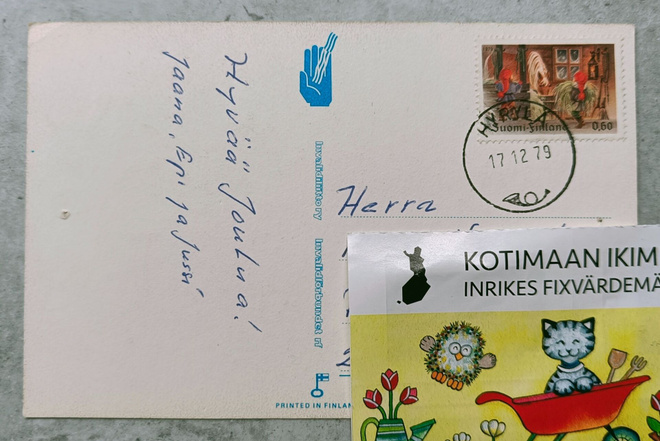 Hyvää Joulua!
Jaana, Epi ja Jussi
Invalidiliitto ry Invalidförbundet rf
PRINTED IN FINLAN
Suomi-Finland
0,60
HYRYLÄ
17.12.79
Herra
KOTIMAAN IKIM
INRIKES FIXVÄRDEMÄ